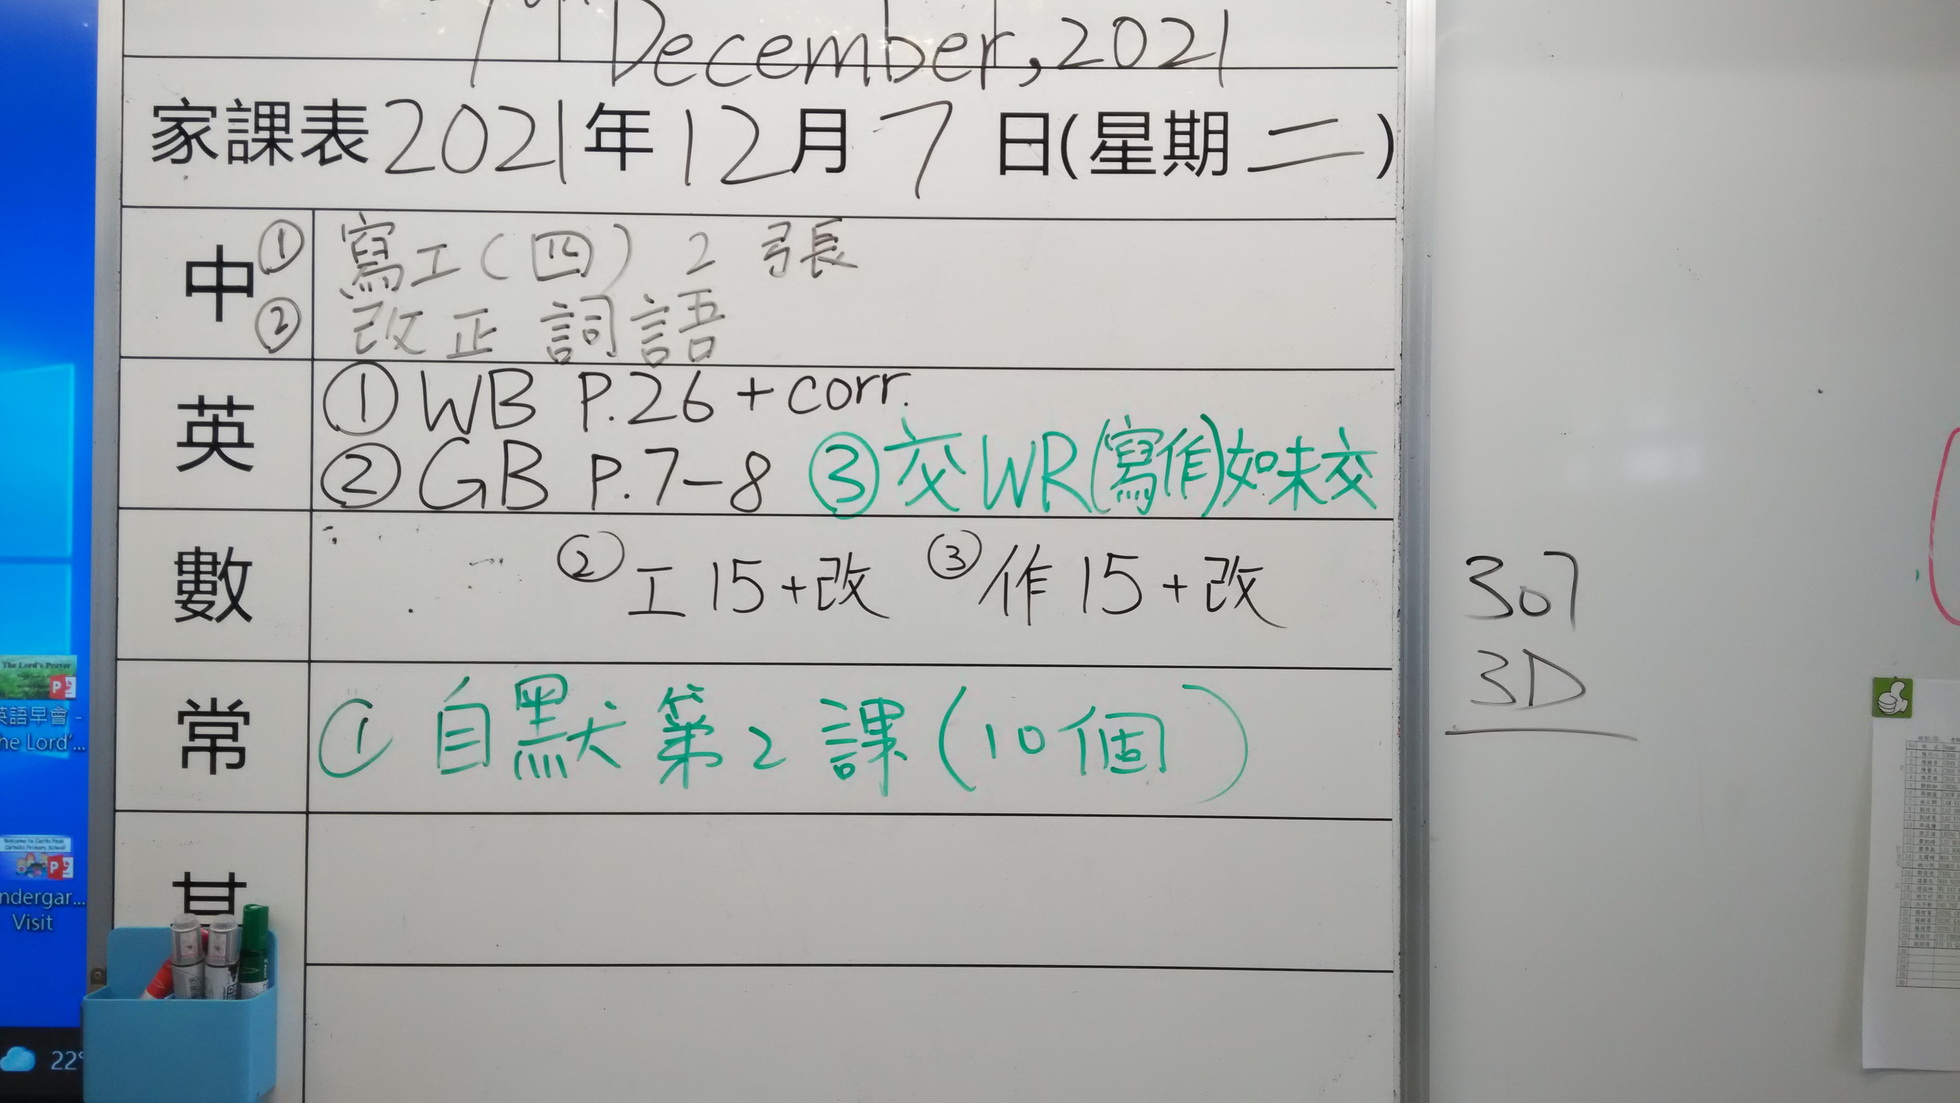 7th December, 2021
家課表2021年12月7日(星期二)
中
① 寫工(四) 2 張
② 改正 詞語
英
① WB P.26 + corr.
② GB P.7-8 ③ 交WR(寫作)如未交
數
② 工15+改 ③ 作15+改
常
① 自默第2課(10個)
307
3D
The Lord's Prayer
英語早會 -
he Lord'...
ndergar...
Visit
22°